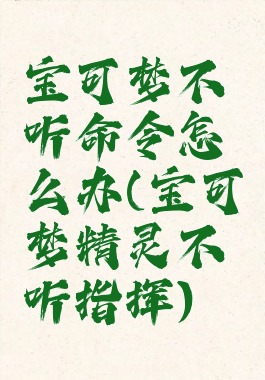 宝可梦不
听命令怎
么办(宝可
梦精灵不
听指挥)